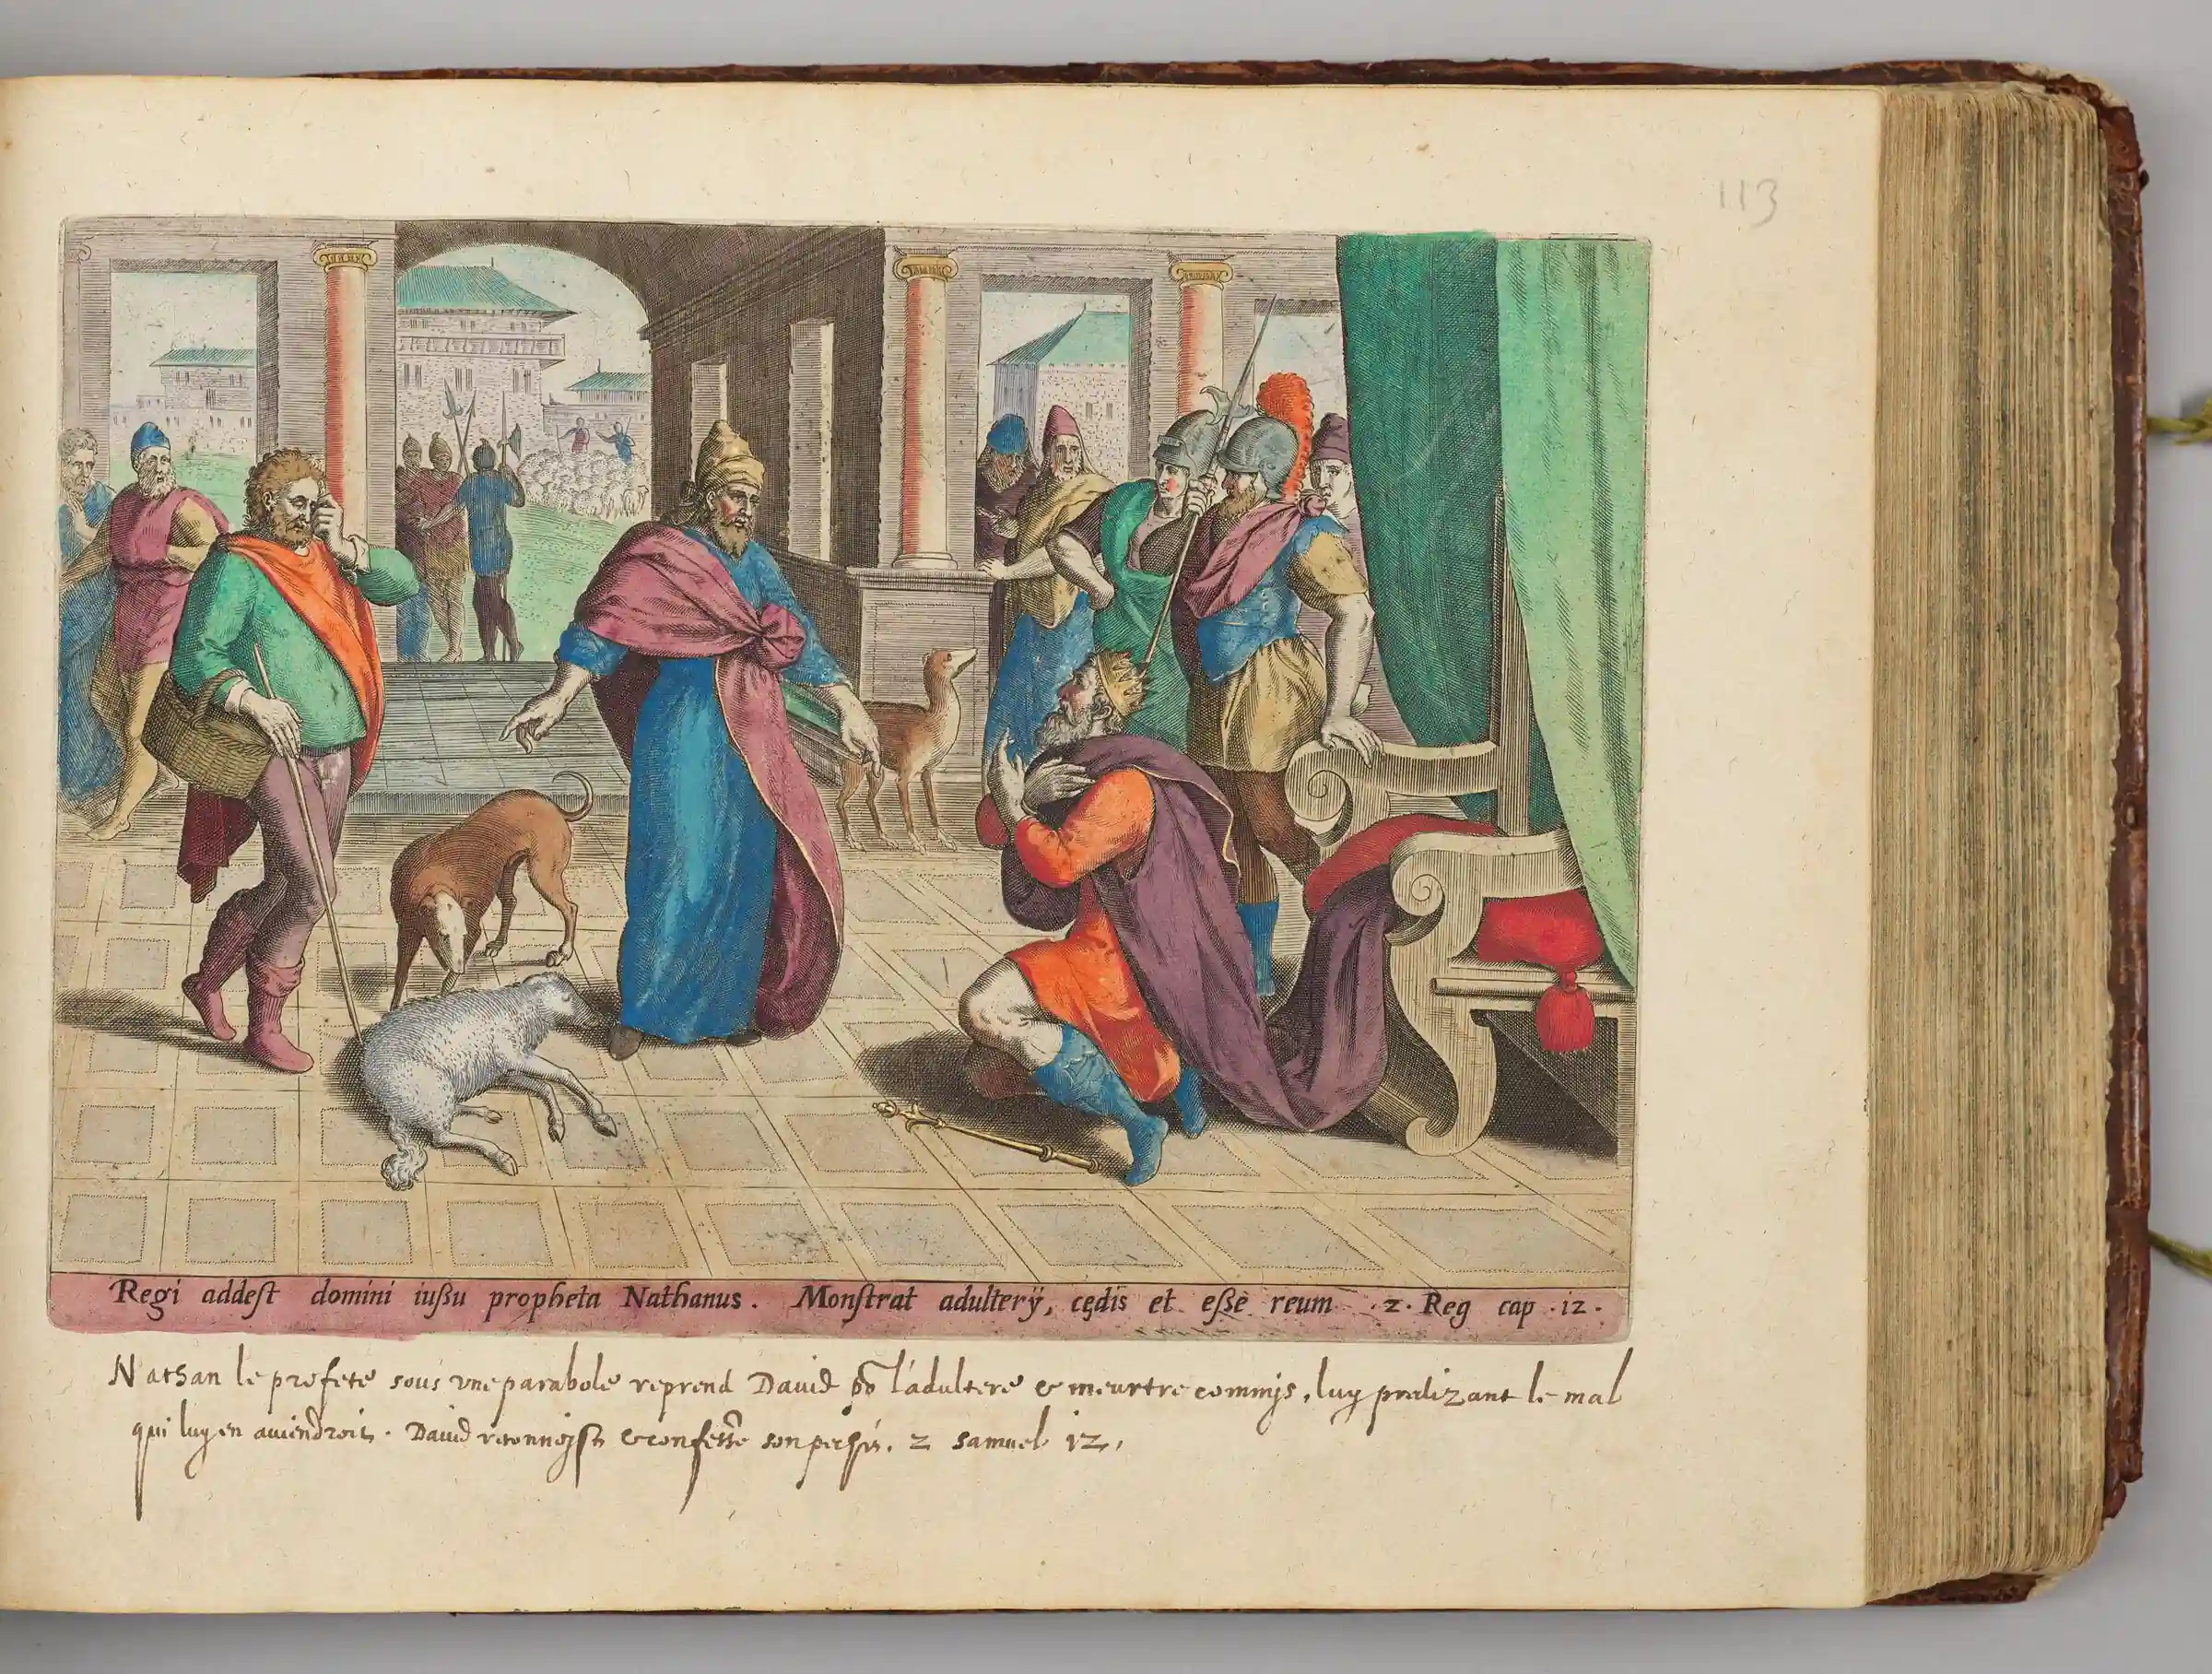 113
Regi addeſt domini iußu propheta Nathanus. Monſtrat adulterÿ, cędis et eßè reum .2. Reg cap .12.
Nathan le profete sous vne parabole reprend Dauid l'adultere & meurtre commis, luy predizant le mal
qui luy en auiendroit. Dauid & confesse son peché. 2 Samuel 12,